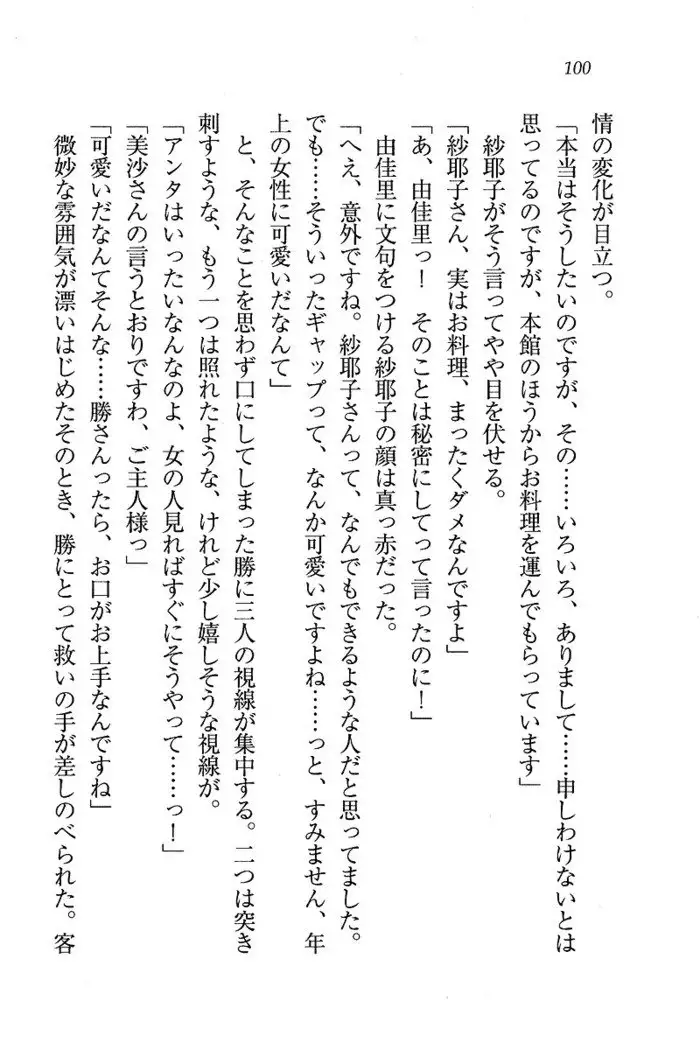 100
情の変化が目立つ。
「本当はそうしたいのですが、その……いろいろ、ありまして……申しわけないとは
思ってるのですが、本館のほうからお料理を運んでもらっています」
　紗耶子がそう言ってやや目を伏せる。
「紗耶子さん、実はお料理、まったくダメなんですよ」
「あ、由佳里っ！　そのことは秘密にしてって言ったのに！」
　由佳里に文句をつける紗耶子の顔は真っ赤だった。
「へえ、意外ですね。紗耶子さんって、なんでもできるような人だと思ってました。
でも……そういったギャップって、なんか可愛いですよね……っと、すみません、年
上の女性に可愛いだなんて」
　と、そんなことを思わず口にしてしまった勝に三人の視線が集中する。二つは突き
刺すような、もう一つは照れたような、けれど少し嬉しそうな視線が。
「アンタはいったいなんなのよ、女の人見ればすぐにそうやって……っ！」
「美沙さんの言うとおりですわ、ご主人様っ」
「可愛いだなんてそんな……勝さんったら、お口がお上手なんですね」
　微妙な雰囲気が漂いはじめたそのとき、勝にとって救いの手が差しのべられた。客